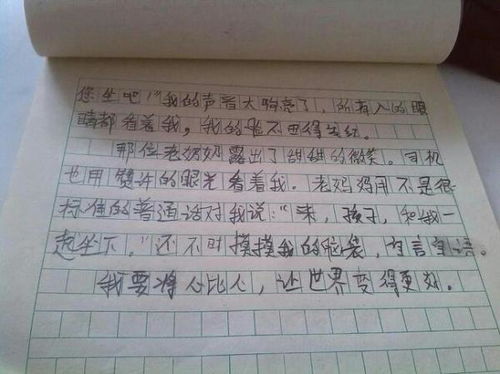 您坐吧!"我的声音太响亮了,所有人的眼
睛都看着我,我的脸不由得发红。
那位老奶奶露出了甜甜的微笑。司机
也用赞许的眼光看着我。老奶奶用不是很
标准的普通话对我说:"来,孩子,和我一
起坐下。"还不时摸摸我的脑袋,自言自语。
我要将心比心,让世界变得更好。